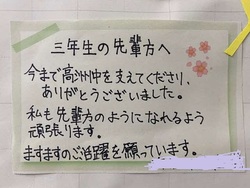 三年生の先輩方へ
今まで高洲中を支えてくださり、
ありがとうございました。
私も先輩方のようになれるよう
頑張ります。
ますますのご活躍を願っています。